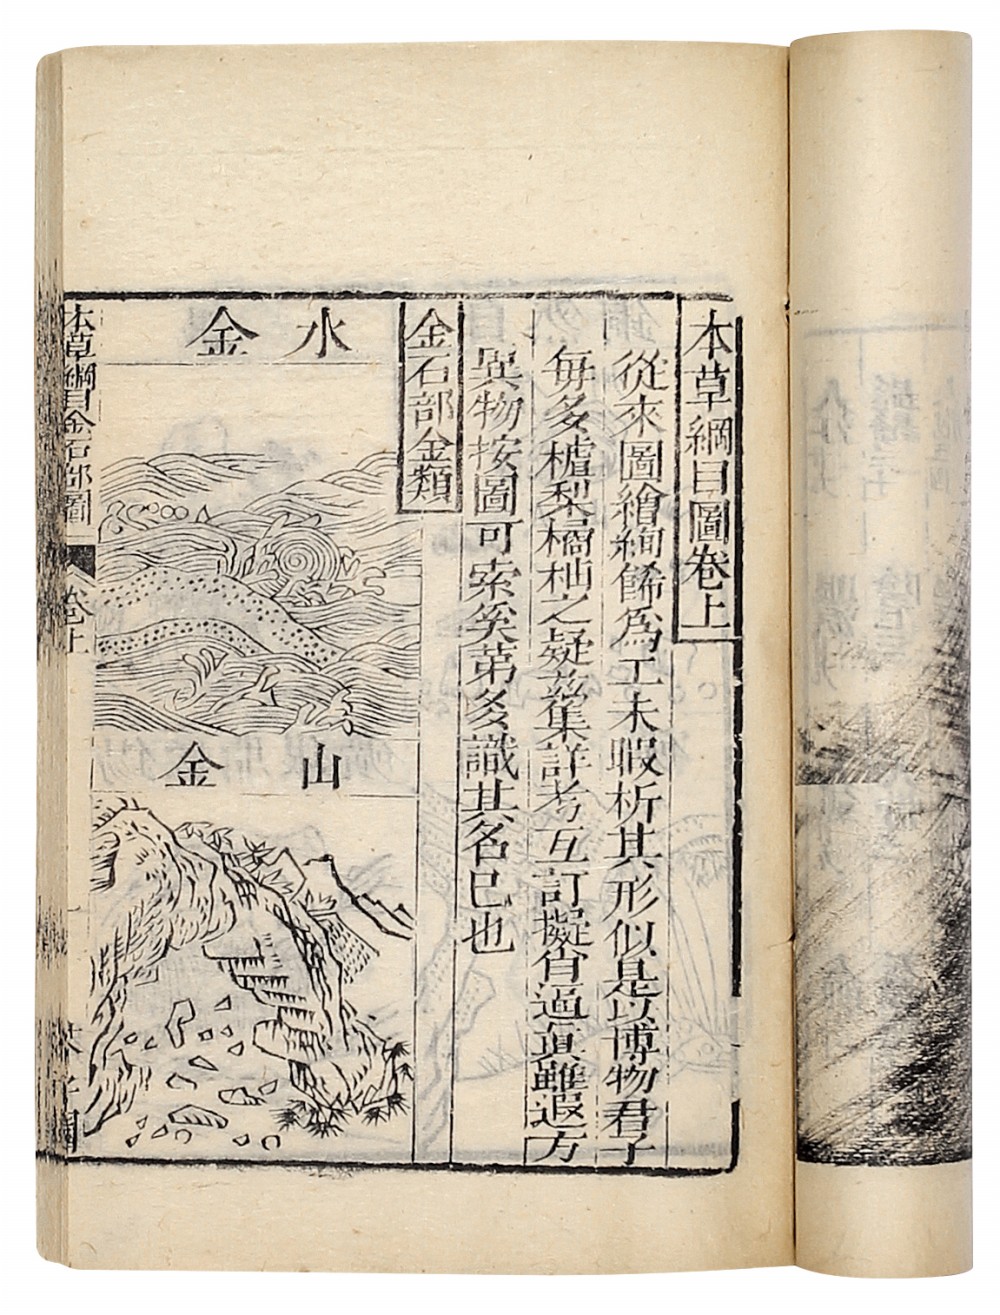 本草綱目圖卷上
從來圖繪絢餙爲工未暇析其形似是以博物君子
每多樝梨橘柚之疑茲集詳考互訂擬肖逼眞雖遐方
異物按圖可索奚第多識其名已也
金石部金類
水金
山金
本草綱目金石部圖
卷上
一
芥子園